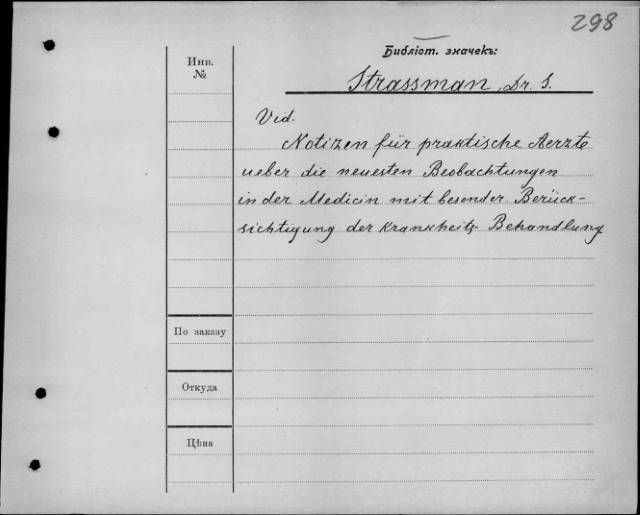 298
Библіот. значекъ:
Инв.
№
Strassman, Dr. S.
Vid.
Notizen für praktische Aerzte
ueber die neuesten Beobachtungen
in der Medicin mit besonder Berück-
sichtigung der Krankheits-Behandlung
По заказу
Откуда
Цѣна